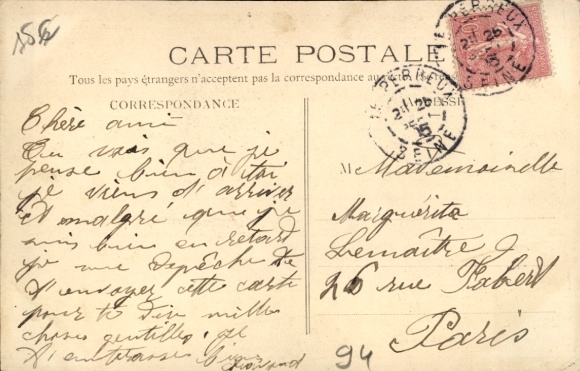 CARTE POSTALE
Tous les pays étrangers n'acceptent pas la correspondance au
CORRESPONDANCE
Chère amie
Tu vois que je
pense bien à toi
je viens d'arriver
et malgré que je
suis bien en retard
je me dépêche de
t'envoyer cette carte
pour te dire mille
choses gentilles. je
t'embrasse bien
M Mademoiselle
Marguerite
Lemaître
26 rue Fabert
Paris
94
LE PERREUX
SEINE
LE PERREUX
SEINE